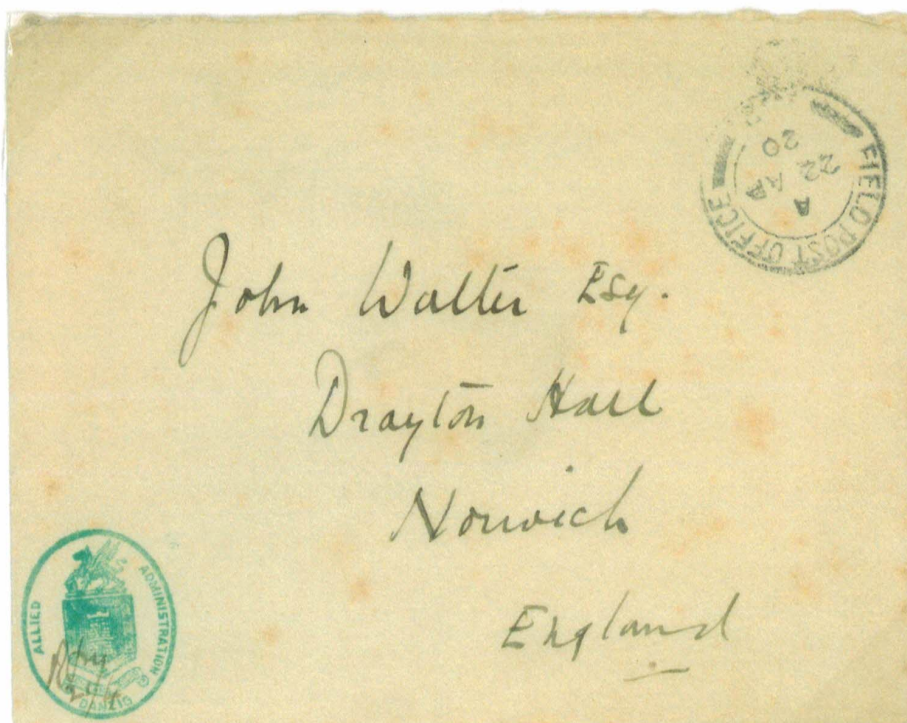 FIELD POST OFFICE
A
22 AP
20
John Walter Esq.
Drayton Hall
Norwich
England
ALLIED ADMINISTRATION
DANZIG